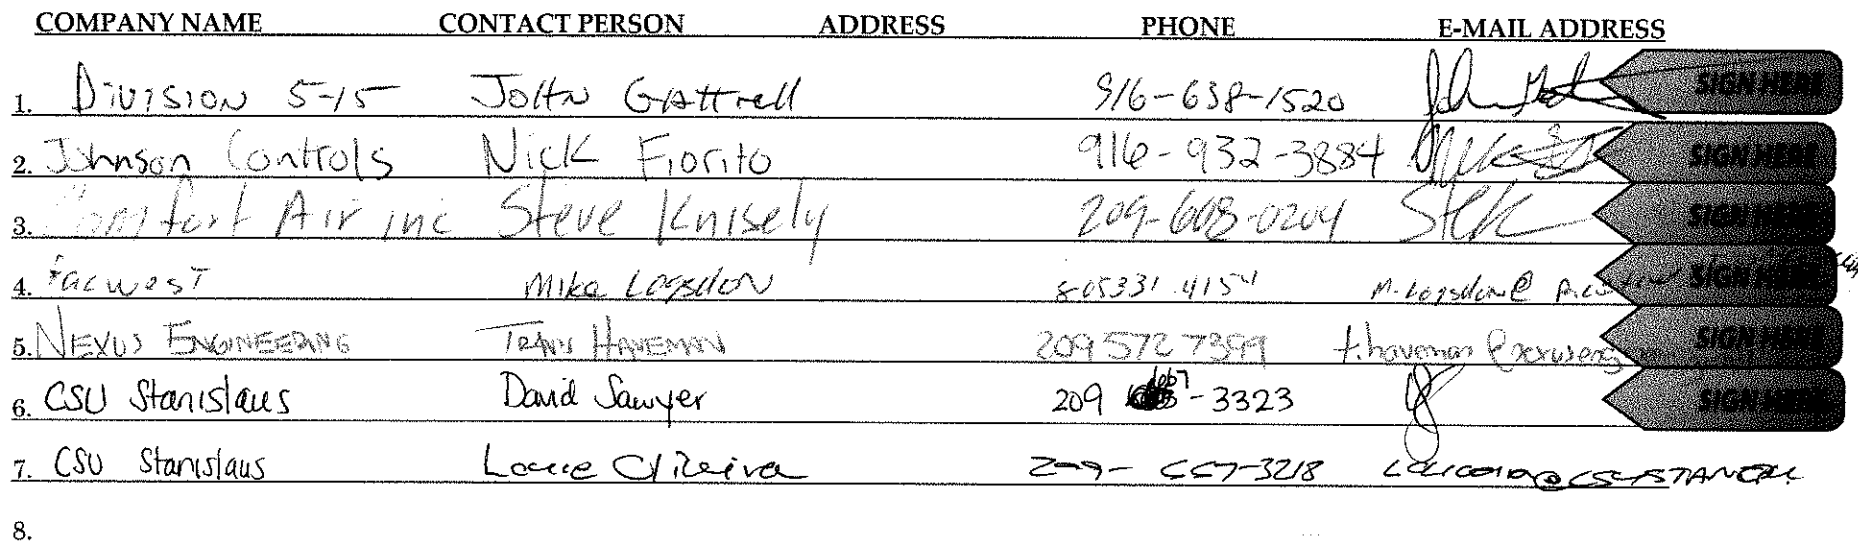 COMPANY NAME CONTACT PERSON ADDRESS PHONE E-MAIL ADDRESS
1. DIVISION 5-15 JOHN GATTrell 916-638-1520 SIGN HERE
2. Johnson Controls Nick Fiorito 916-932-3884 SIGN HERE
3. Comfort Air inc Steve Knisely 209-608-0204 SIGN HERE
4. Facwest Mike Logsdon 805331.4154 M.Logsdon@ SIGN HERE
5. NEXUS ENGINEERING HAVEMAN 209 572 7399 SIGN HERE
6. CSU Stanislaus David Sawyer 209 667-3323 SIGN HERE
7. CSU Stanislaus 3218
8.